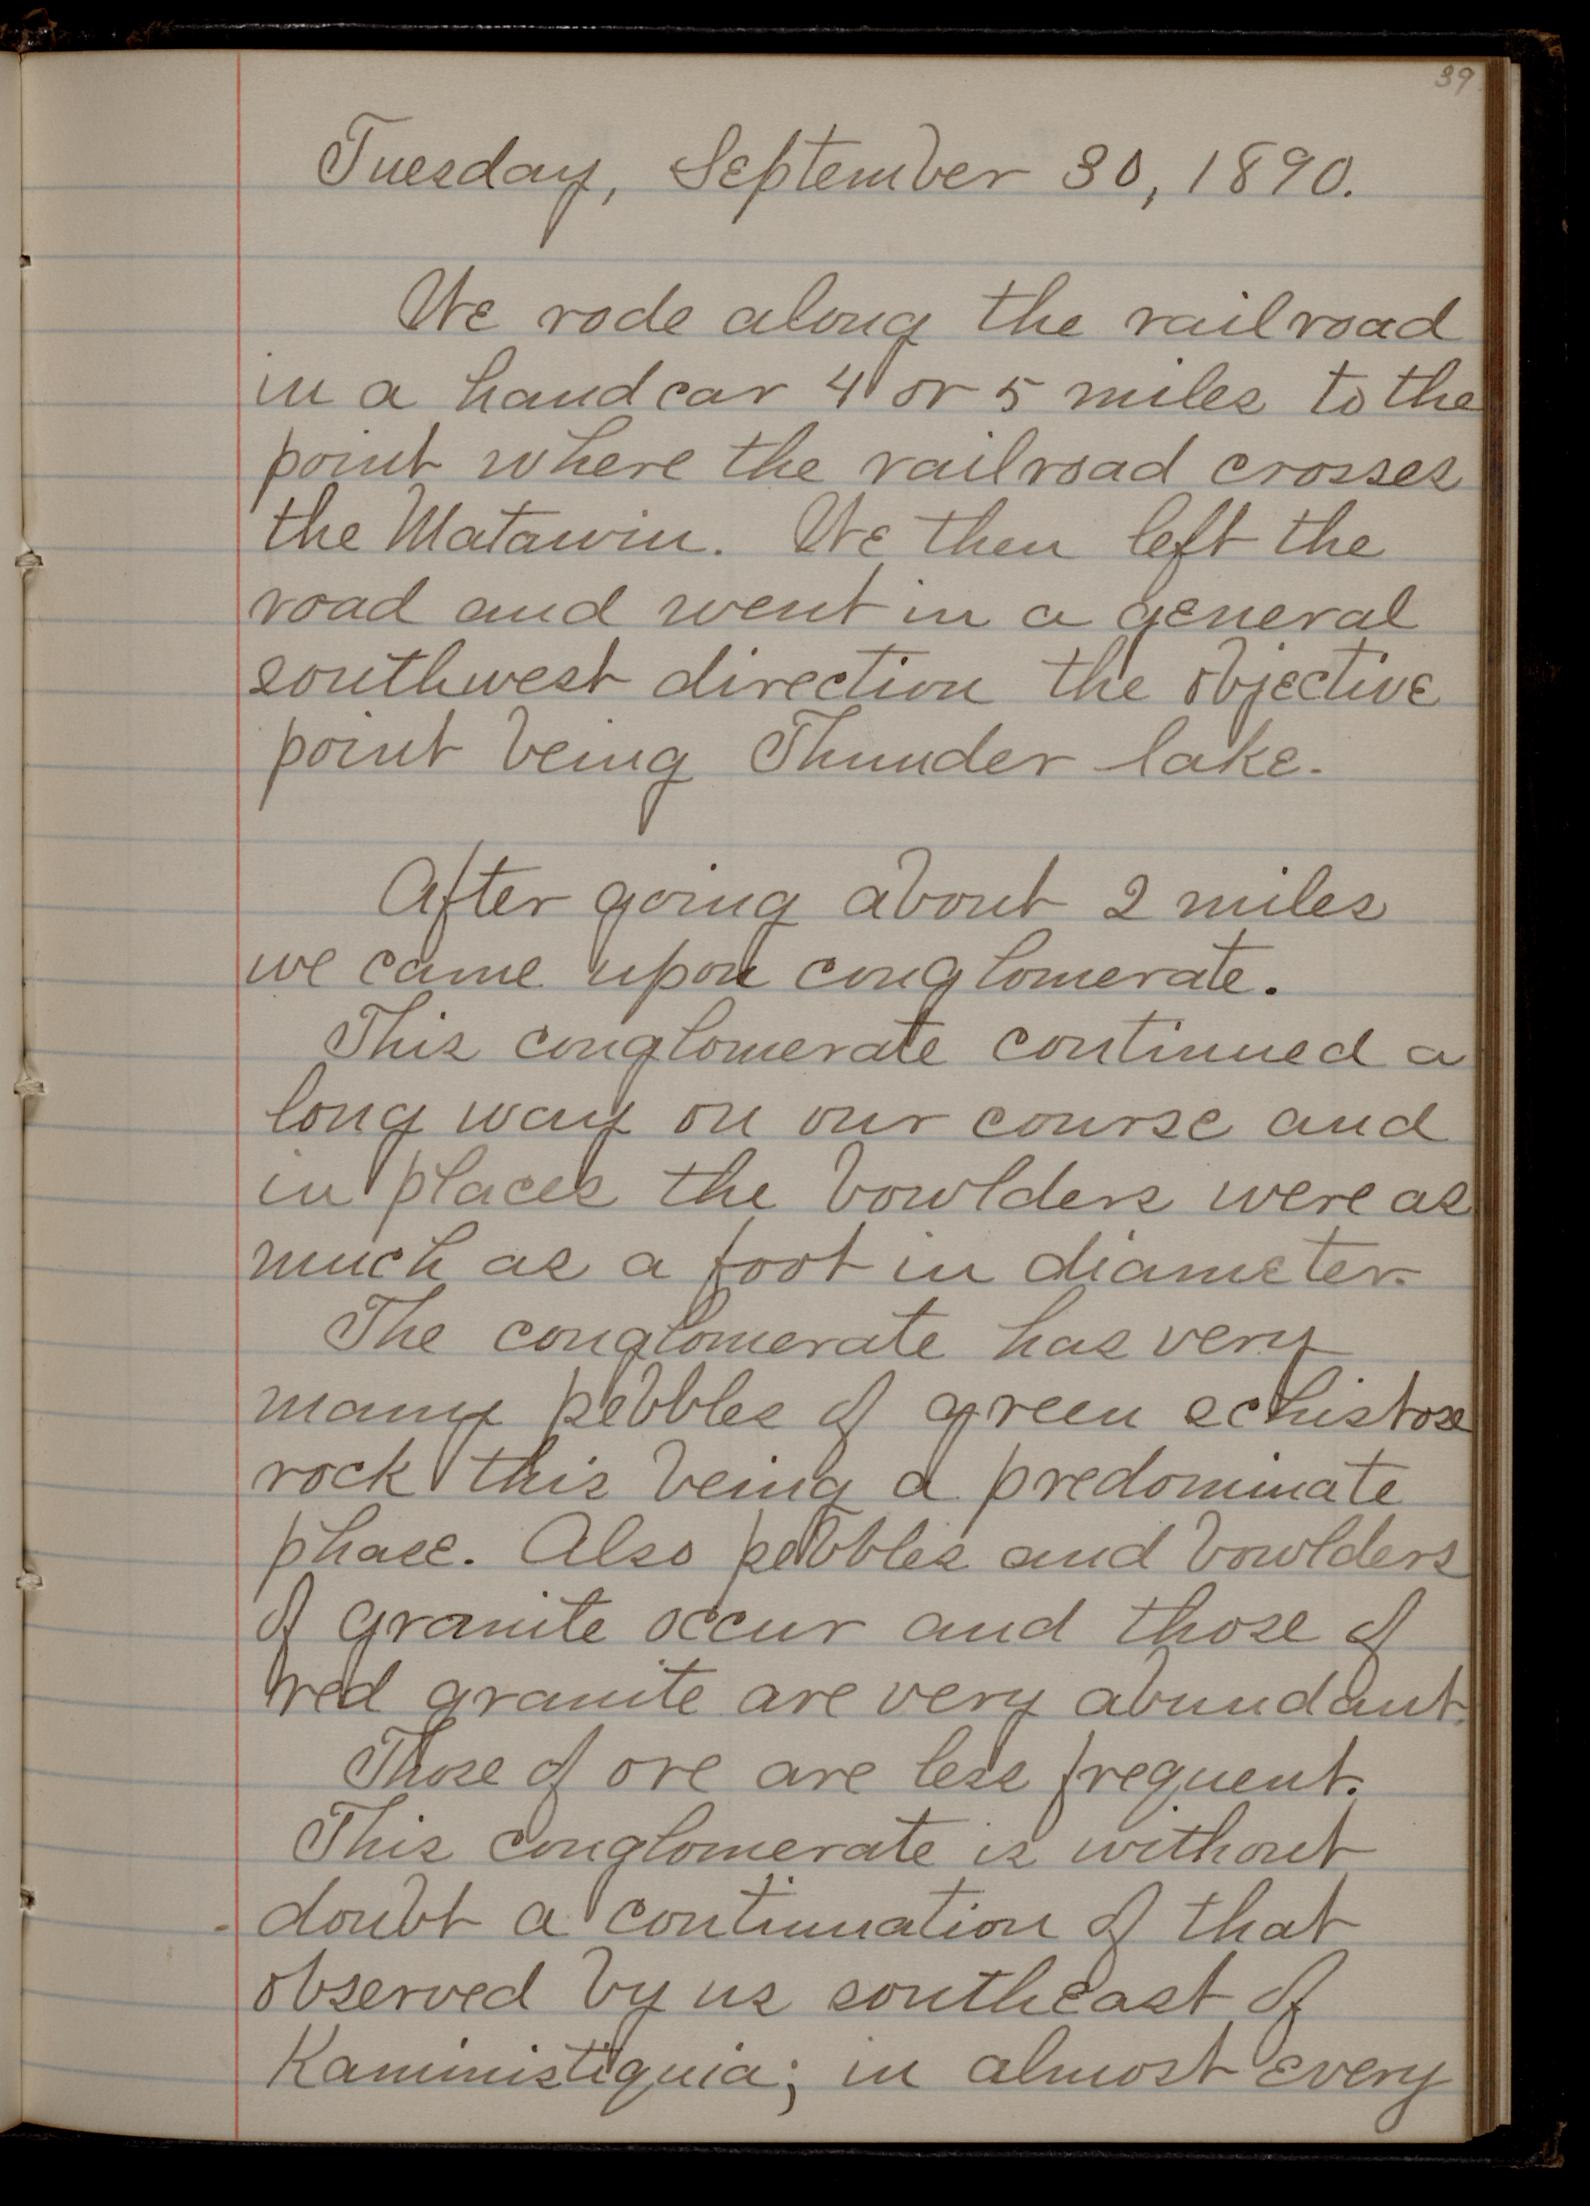 39
Tuesday, September 30, 1890.
We rode along the railroad
in a handcar 4 or 5 miles to the
point where the railroad crosses
the Matawin. We then left the
road and went in a general
southwest direction the objective
point being Thunder lake.
After going about 2 miles
we came upon conglomerate.
This conglomerate continued a
long way on our course and
in places the bowlders were as
much as a foot in diameter.
The conglomerate has very
many pebbles of green schistose
rock this being a predominate
phase. Also pebbles and bowlders
of granite occur and those of
red granite are very abundant.
Those of ore are less frequent.
This conglomerate is without
doubt a continuation of that
observed by us southeast of
Kaministiquia; in almost every